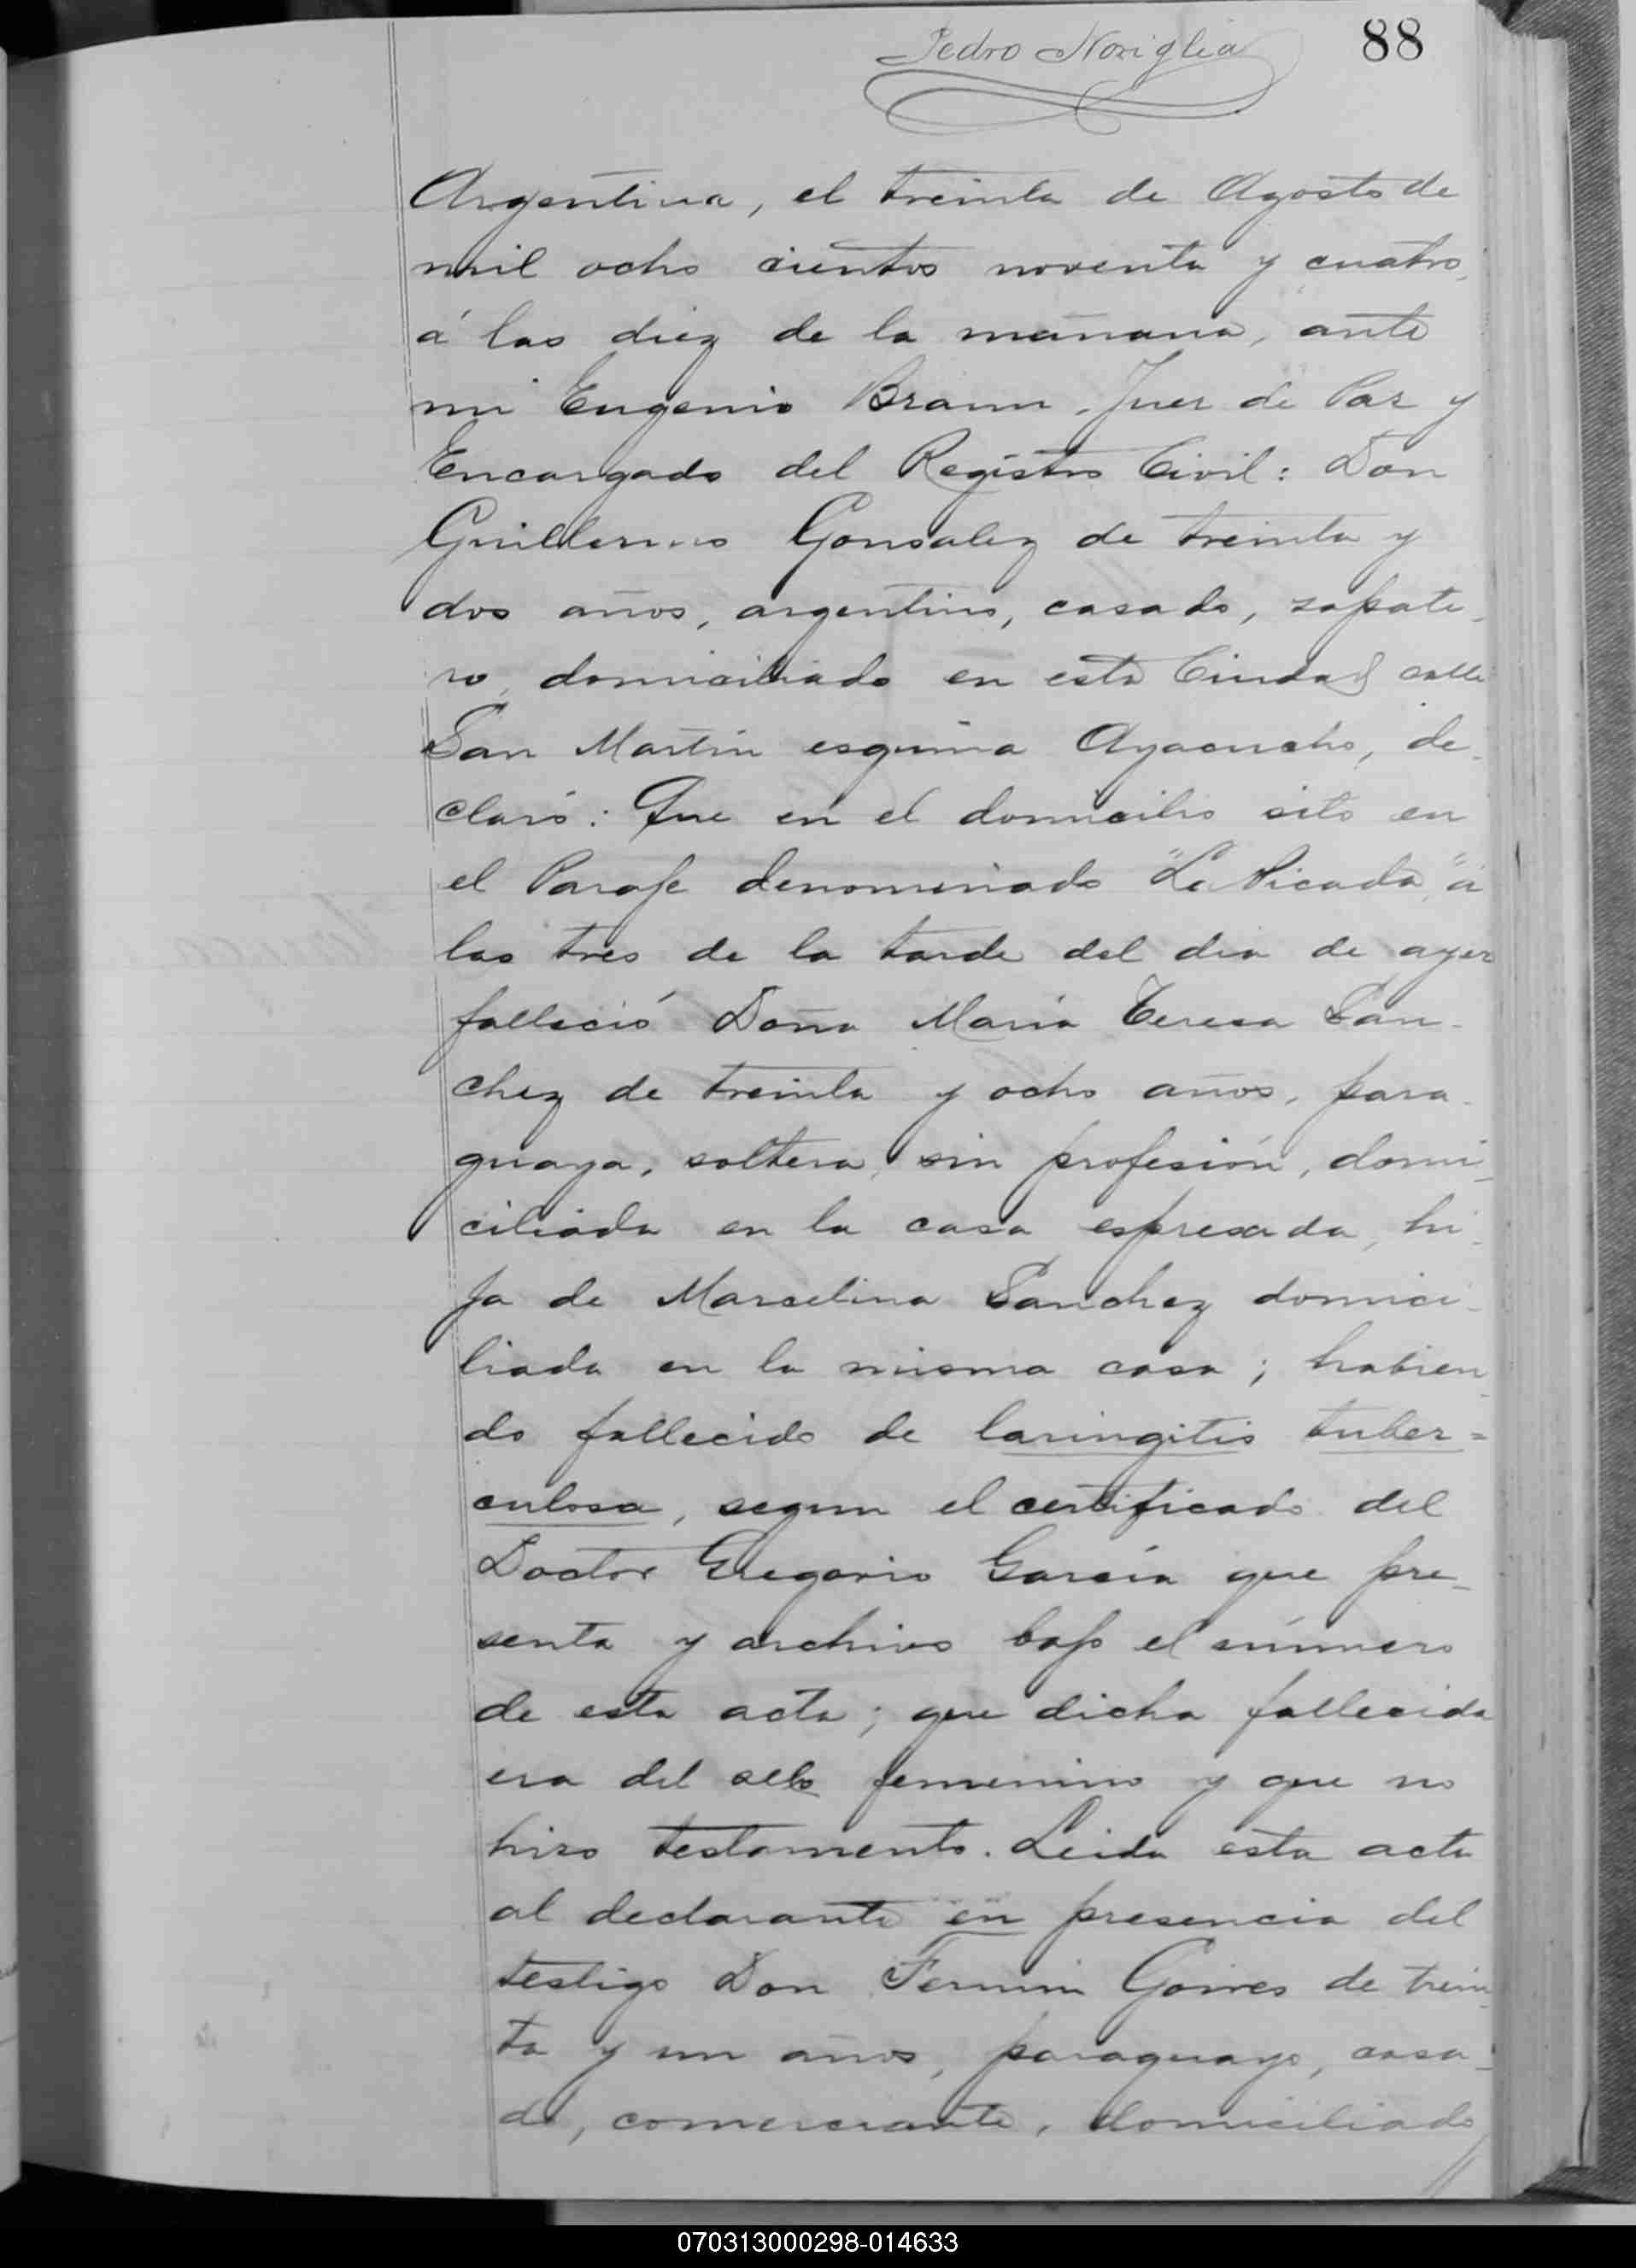 Pedro Noziglia
88
Argentina, el treinta de Agosto de
mil ocho cientos noventa y cuatro,
á las diez de la mañana, ante
mi Eugenio Braun, Juez de Paz y
Encargado del Registro Civil: Don
Guillermo Gonsalez de treinta y
dos años, argentino, casado, zapate-
ro, domiciliado en esta Ciudad calle
San Martin esquina Ayacucho, de-
claró: Que en el domicilio sito en
el Paraje denominado "La Picada," á
las tres de la tarde del dia de ayer
falleció Doña María Teresa San-
chez de treinta y ocho años, para-
guaya, soltera, sin profesión, domi-
ciliada en la casa espresada, hi-
ja de Marselina Sanchez domici-
liada en la misma casa; habien-
do fallecido de laringitis tuber=
culosa, segun el certificado del
Doctor Gregorio García que pre-
senta y archivo bajo el número
de esta acta; que dicha fallecida
era del femenino y que no
hizo testamento. Leida esta acta
al declarante en presencia del
testigo Don Fermin de trein-
ta y un años, paraguayo, casa-
do, comerciante, domiciliado
070313000298-014633